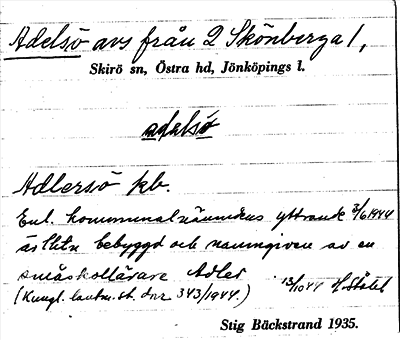 Adelsö avs från 2 Skönberga 1,
Skirö sn, Östra hd, Jönköpings l.
adelsö
Adlersö kb.
Enl. kommunalnämndens yttrande 2/6 1944
är lht bebyggd och namngiven av en
småskollärare Adler
(Kungl. lantm. st. dnr 343/1944.) 13/10 44 H. Ståhl
Stig Bäckstrand 1935.